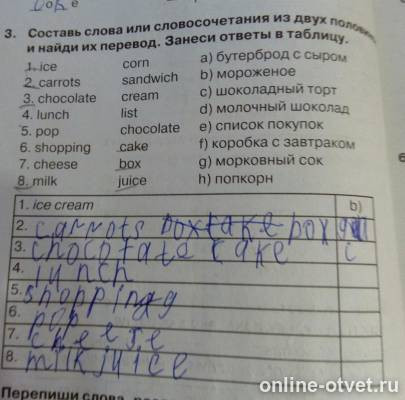 3. Составь слова или словосочетания из двух половин
и найди их перевод. Занеси ответы в таблицу.
1. ice corn a) бутерброд с сыром
2. carrots sandwich b) мороженое
3. chocolate cream c) шоколадный торт
4. lunch list d) молочный шоколад
5. pop chocolate e) список покупок
6. shopping cake f) коробка с завтраком
7. cheese box g) морковный сок
8. milk juice h) попкорн
1. ice cream b)
2. carrots
3. chocolate cake c
4. lunch
5. shopping
6. pop
7. cheese
8. milk juice
Перепиши слова,
online-otvet.ru